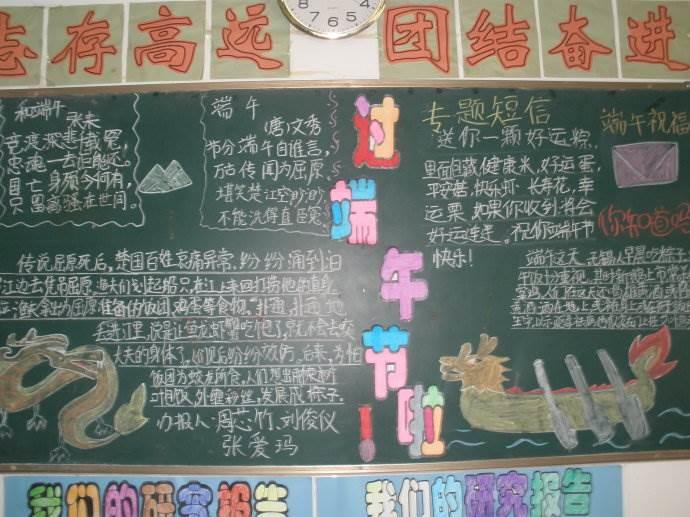 志存高远 团结奋进
和端午
张耒
竞渡深悲千载冤，
忠魂一去讵能还。
国亡身殒今何有，
只留离骚在世间。
端午
(唐)文秀
节分端午自谁言，
万古传闻为屈原。
堪笑楚江空渺渺，
不能洗得直臣冤。
过端午节啦！
专题短信
送你一颗好运粽，
里面包藏健康米、好运蛋，
平安菩、快乐虾、长寿花、幸
运栗，如果你收到将会
好运连连。祝你端午节
快乐！
端午祝福
你知道吗
传说屈原死后，楚国百姓哀痛异常，纷纷涌到汨
江边去凭吊屈原。渔夫们划起船只，在江上来回打捞他的真身。
有渔夫拿出为屈原准备的饭团、鸡蛋等食物，“扑通、扑通”地
丢进江里，说是让鱼龙虾蟹吃饱了，就不会去咬
大夫的身体了。人们见后纷纷效仿。后来，为怕
饭团为蛟龙所食，人们想出用楝树
叶包饭，外缠彩丝，发展成粽子。
办报人：周芯竹、刘俊仪
张爱玛
端午这天，无锡人早晨吃粽子，
我们的研究报告
我们的研究报告